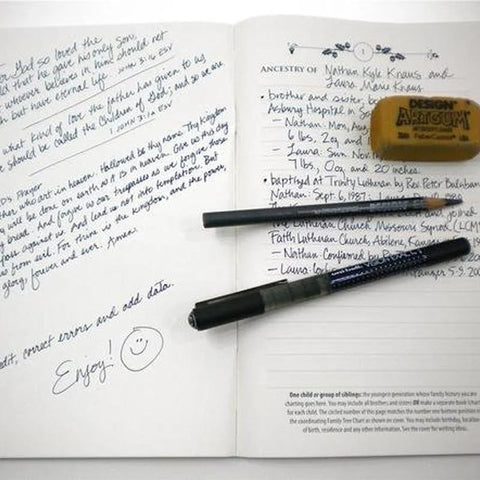 For God so loved the
that he gave his only son,
whoever believes in him should not
but have eternal life
JOHN 3:16 ESV
what kind of love the father has given to us
we should be called the children of God; and so we are
1 JOHN 3:1a ESV
Prayer
who art in heaven. Hallowed be thy name. Thy Kingdom
will be done on earth as it is in heaven. Give us this day
bread. And forgive us our trespasses as we forgive those
against us. And lead us not into temptation. But
us from evil. For thine is the kingdom, and the power,
glory, forever and ever. Amen.
edit, correct errors and add data.
Enjoy!
1
ANCESTRY OF Nathan Kyle Knaus and
Laura Marie Knaus
• brother and sister, b
Asbury Hospital in S
– Nathan: Mon, Aug
6 lbs, 2 oz, and
– Laura: Sun, Nov
7 lbs, 0 oz, and 20 inches.
• baptized at Trinity Lutheran by Rev. Peter
Nathan: Sept. 6, 1987;
and joined
The Lutheran Church Missouri Synod (LCMS)
Faith Lutheran Church, Abilene, Kansas
– Nathan: Confirmed by
– Laura:
5-9-200
DESIGN
ARTGUM
FaberCastell USA
One child or group of siblings: the youngest generation whose family history you are
charting goes here. You may include all brothers and sisters OR make a separate book (chart)
for each child. The circled number of this page matches the number one bottom position in
the coordinating Family Tree Chart as shown on cover. You may include birthday, location
of birth, residence and any other information. See the cover for writing ideas.